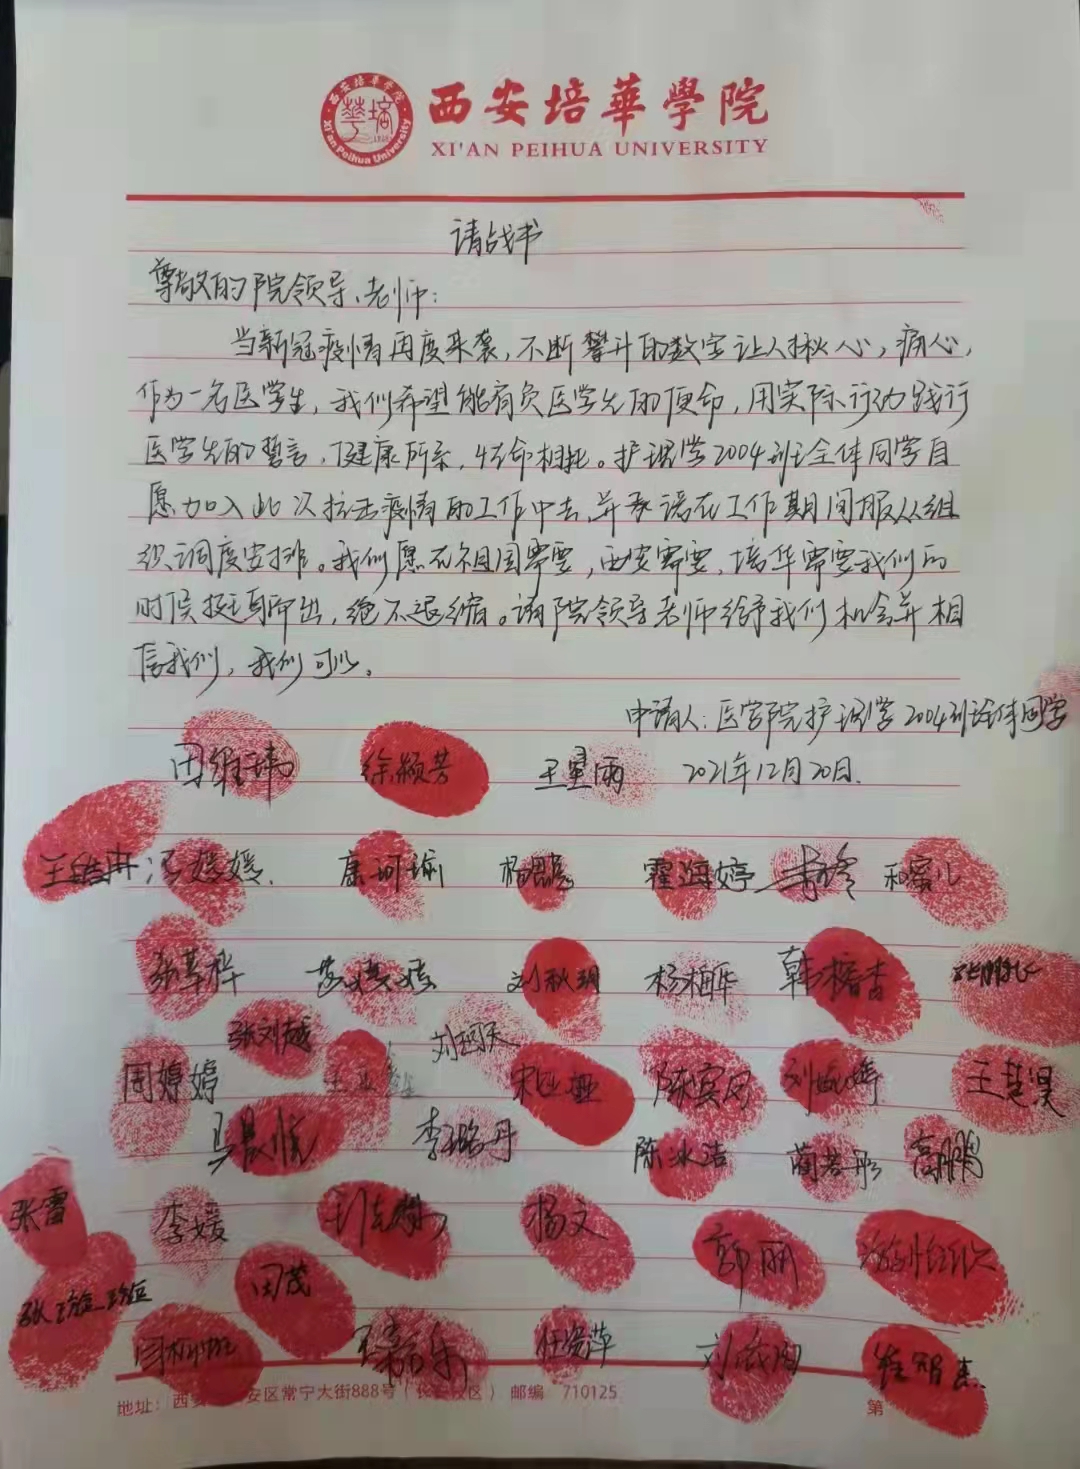 西安培華學院
XI'AN PEIHUA UNIVERSITY
西安培华学院
Xi'an Peihua University
请战书
尊敬的院领导、老师：
当新冠疫情再度来袭，不断攀升的数字让人揪心，痛心，
作为一名医学生，我们希望能肩负医学生的使命，用实际行动践行
医学生的誓言，健康所系，性命相托。护理学2004班全体同学自
愿加入此次抗击疫情的工作中去，并承诺在工作期间服从组
织调度安排。我们愿在祖国需要，西安需要，培华需要我们的
时候挺身而出，绝不退缩。请院领导老师给予我们机会并相
信我们，我们可以。
申请人：医学院护理学2004班全体同学
田维玮 徐颖芳 王星雨 2021年12月20日.
冯媛媛. 康珂瑜 霍海婷
刘秋玥 杨柏华 韩椿杏
张刘越
周婷婷 宋亚娅 陈宾凤 王楚昊
马晨悦 李璐丹 陈冰洁 蔺若彤 高鹏
张雪 李媛 杨文 郭丽
田茂
任晓萍 崔智杰
地址：西安 安区常宁大街888号（长 校区） 邮编 710125 第